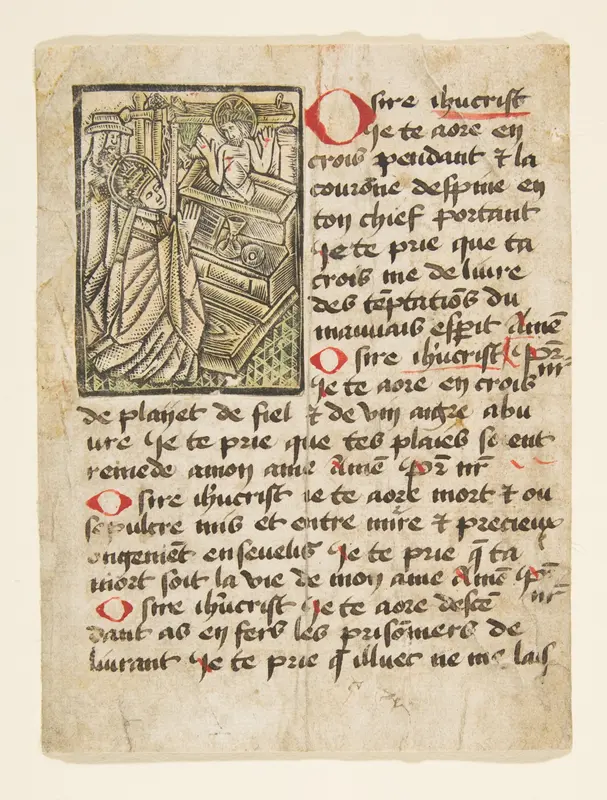 O sire ih̄ucrist
Je te aore en
crois pendant ⁊ la
couro̅ne despine en
ton chief portant
Je te prie que ta
crois me deliure
des te̅ptatio̅s du
mauuais esp̅rit Ame̅
O sire ih̄ucrist Pr̅ nr̅
Je te aore en crois
de playet de fiel ⁊ de vin aigre abu
ure Je te prie que tes plaies soient
remede amon ame Ame̅ Pr̅ nr̅
O sire ih̄ucrist ie te aore mort ⁊ ou
sepulcre mis et entre mirre ⁊ precieux
ongeme̅t enseuelis Je te prie q̅ ta
mort soit la vie de mon ame Ame̅ Pr̅ nr̅
O sire ih̄ucrist Je te aore desce̅
dant as enfers les priso̅niers de
liurant Je te prie q̅ illuec ne me lais